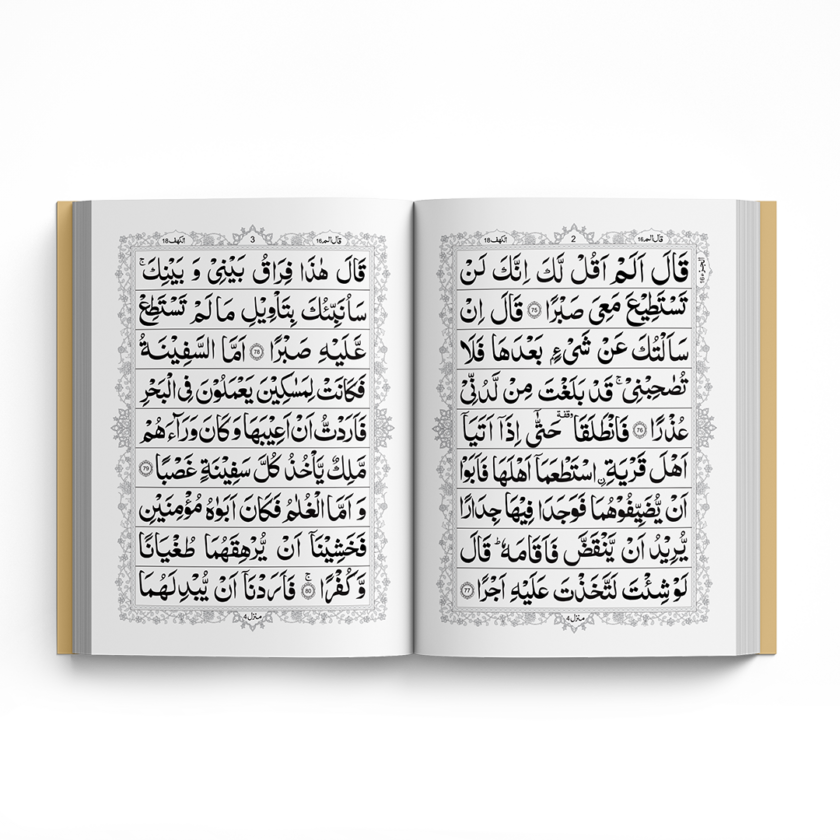 قال الم 16 2 الكهف 18
الجزء 16
قَالَ اَلَمْ اَقُلْ لَّكَ اِنَّكَ لَنْ
تَسْتَطِيْعَ مَعِىَ صَبْرًا 75 قَالَ اِنْ
سَاَلْتُكَ عَنْ شَىْءٍۭ بَعْدَهَا فَلَا
تُصٰحِبْنِىْ ۚ قَدْ بَلَغْتَ مِنْ لَّدُنِّىْ
عُذْرًا 76 فَانْطَلَقَا ٝ وقفة حَتّٰٓى اِذَاۤ اَتَيَاۤ
اَهْلَ قَرْيَةِ ۟اسْتَطْعَمَاۤ اَهْلَهَا فَاَبَوْا
اَنْ يُّضَيِّفُوْهُمَا فَوَجَدَا فِيْهَا جِدَارًا
يُّرِيْدُ اَنْ يَّنْقَضَّ فَاَقَامَهٗ ؕ قَالَ
لَوْ شِئْتَ لَتَّخَذْتَ عَلَيْهِ اَجْرًا 77
منزل 4
قال الم 16 3 الكهف 18
قَالَ هٰذَا فِرَاقُ بَيْنِىْ وَ بَيْنِكَ ۚ
سَاُنَبِّئُكَ بِتَاْوِيْلِ مَا لَمْ تَسْتَطِعْ
عَّلَيْهِ صَبْرًا 78 اَمَّا السَّفِيْنَةُ
فَكَانَتْ لِمَسٰكِيْنَ يَعْمَلُوْنَ فِى الْبَحْرِ
فَاَرَدْتُّ اَنْ اَعِيْبَهَا وَ كَانَ وَرَآءَهُمْ
مَّلِكٌ يَّاْخُذُ كُلَّ سَفِيْنَةٍ غَصْبًا 79
وَ اَمَّا الْغُلٰمُ فَكَانَ اَبَوٰهُ مُؤْمِنَيْنِ
فَخَشِيْنَاۤ اَنْ يُّرْهِقَهُمَا طُغْيَانًا
وَّ كُفْرًا ۚ 80 فَاَرَدْنَاۤ اَنْ يُّبْدِلَهُمَا
منزل 4